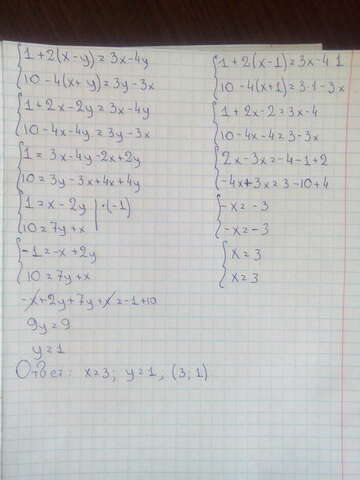 1+2(x-y)=3x-4y
10-4(x+y)=3y-3x
1+2x-2y=3x-4y
10-4x-4y=3y-3x
1=3x-4y-2x+2y
10=3y-3x+4x+4y
1=x-2y |·(-1)
10=7y+x
-1=-x+2y
10=7y+x
-x+2y+7y+x=-1+10
9y=9
y=1
1+2(x-1)=3x-4 1
10-4(x+1)=3·1-3x
1+2x-2=3x-4
10-4x-4=3-3x
2x-3x=-4-1+2
-4x+3x=3-10+4
-x=-3
-x=-3
x=3
x=3
Ответ: x=3; y=1, (3; 1)